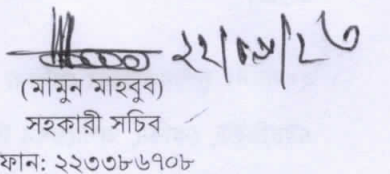 (মামুন মাহবুব)
সহকারী সচিব
ফোন: ২২৩৩৮৬৭০৮